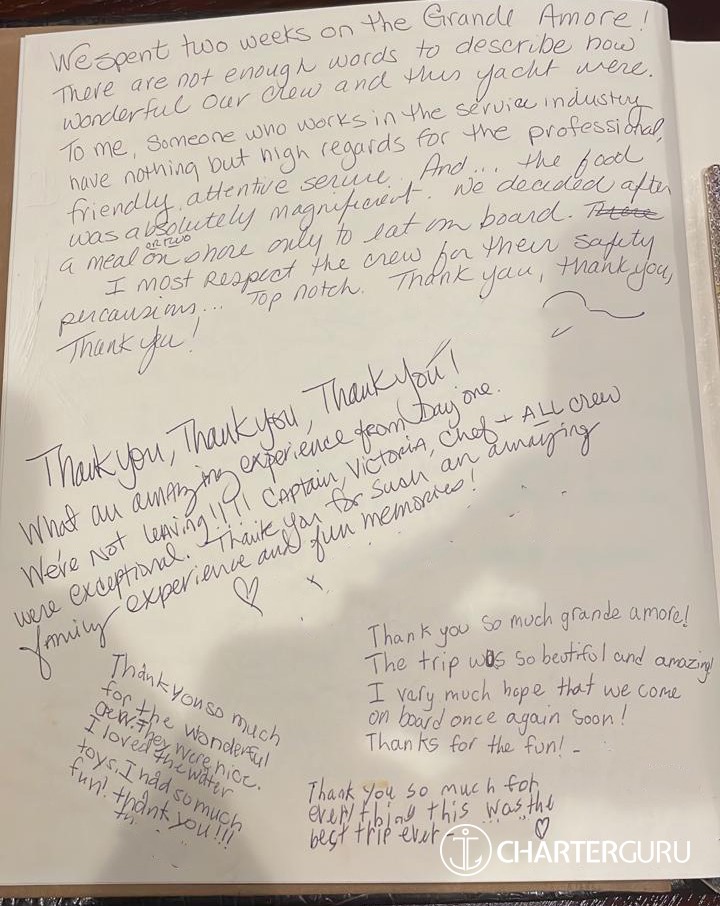 We spent two weeks on the Grande Amore!
There are not enough words to describe how
wonderful our crew and this yacht were.
To me, someone who works in the service industry
have nothing but high regards for the professional,
friendly, attentive service. And... the food
was absolutely magnificent. We decided after
a meal or two on shore only to eat on board. There
I most respect the crew for their safety
percausions... Top notch. Thank you, thank you,
Thank you!
Thank you, Thank you, Thank you!
What an amazing experience from Day one.
We're NOT LEAVING!!!! Captain, Victoria, Chef + ALL crew
were exceptional. Thank you for such an amazing
family experience and fun memories!
Thank you so much grande amore!
The trip was so beutiful and amazing!
I very much hope that we come
on board once again soon!
Thanks for the fun! -
Thank you so much
for the wonderful
crew. They were nice.
I loved the water
toys. I had so much
fun! thank you!!!
Thank you so much for
everything this was the
best trip ever -
CHARTERGURU